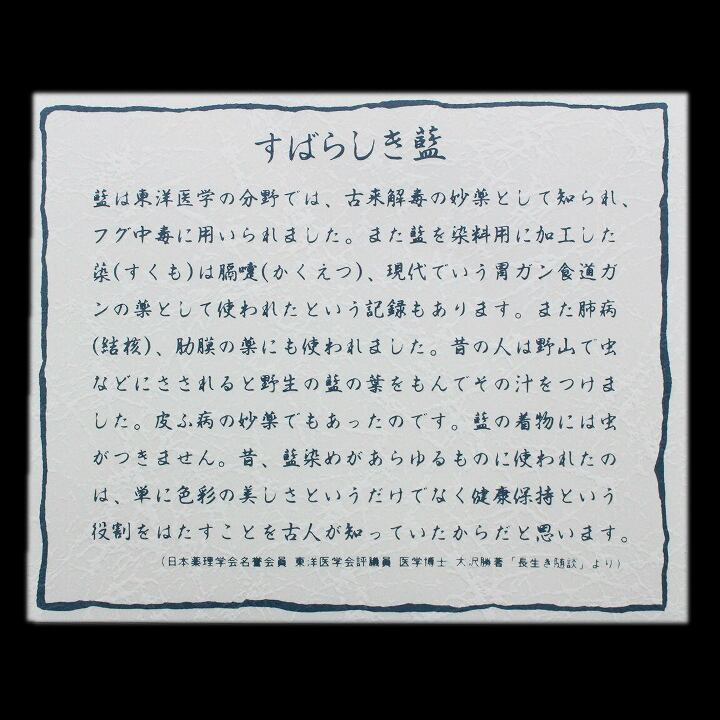 すばらしき藍
藍は東洋医学の分野では、古来解毒の妙薬として知られ、
フグ中毒に用いられました。また藍を染料用に加工した
蒅(すくも)は膈噎(かくえつ)、現代でいう胃ガン食道ガ
ンの薬として使われたという記録もあります。また肺病
(結核)、肋膜の薬にも使われました。昔の人は野山で虫
などにさされると野生の藍の葉をもんでその汁をつけま
した。皮ふ病の妙薬でもあったのです。藍の着物には虫
がつきません。昔、藍染めがあらゆるものに使われたの
は、単に色彩の美しさというだけでなく健康保持という
役割をはたすことを古人が知っていたからだと思います。
(日本薬理学会名誉会員 東洋医学会評議員 医学博士 大沢勝著「長生き随談」より)